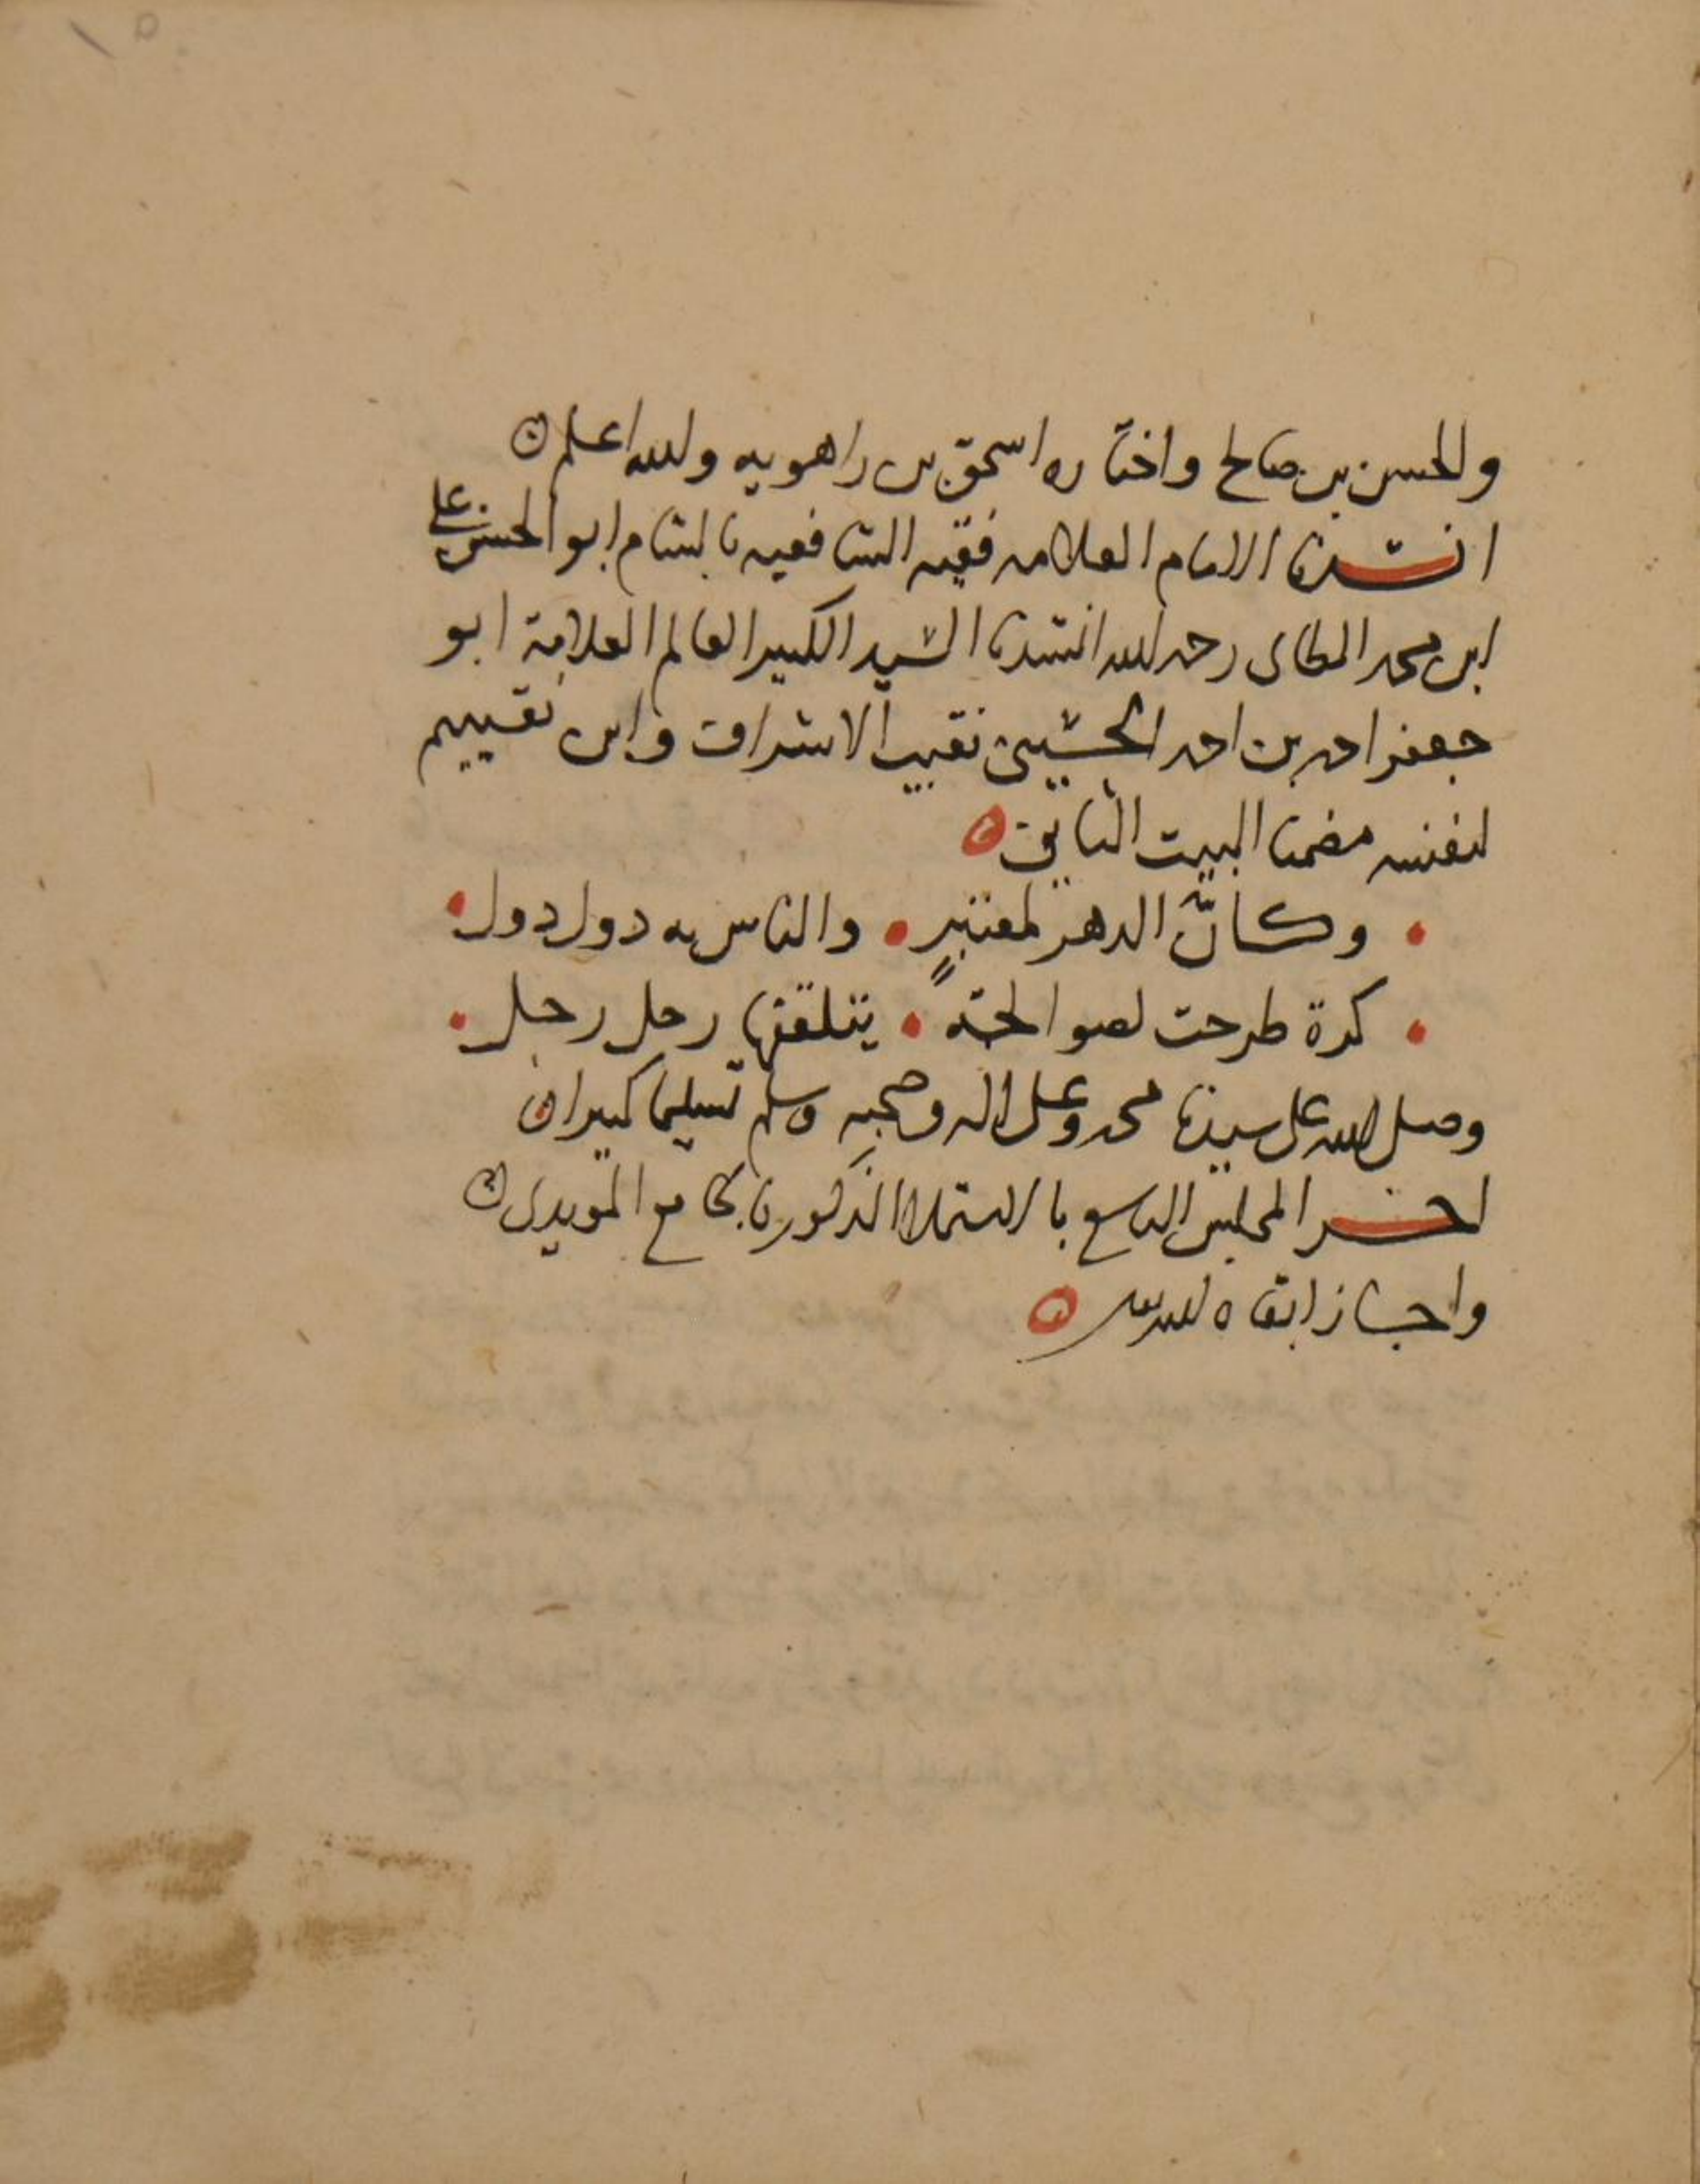 والحسن بن صالح واختاره اسحق بن راهويه والله اعلم
انشدنا الامام العلامه فقيه الشافعيه بالشام ابو الحسن علي
ابن محمد رحمه الله انشدنا السيد الكبير العالم العلامة ابو
جعفر احمد بن احمد الحسيني نقيب الاشراف وابن نقيبهم
لنفسه مضمنا البيت الثاني
وكان الدهر لمعتبر والناس به دول دول
كرة طرحت لصوالجة يتلقفها رجل رجل
وصلى الله على سيدنا محمد وعلى اله وصحبه وسلم تسليما كثيرا
اخر المجلس التاسع بالاستملا المذكور بالجامع المويدي
واجاز ابقاه الله